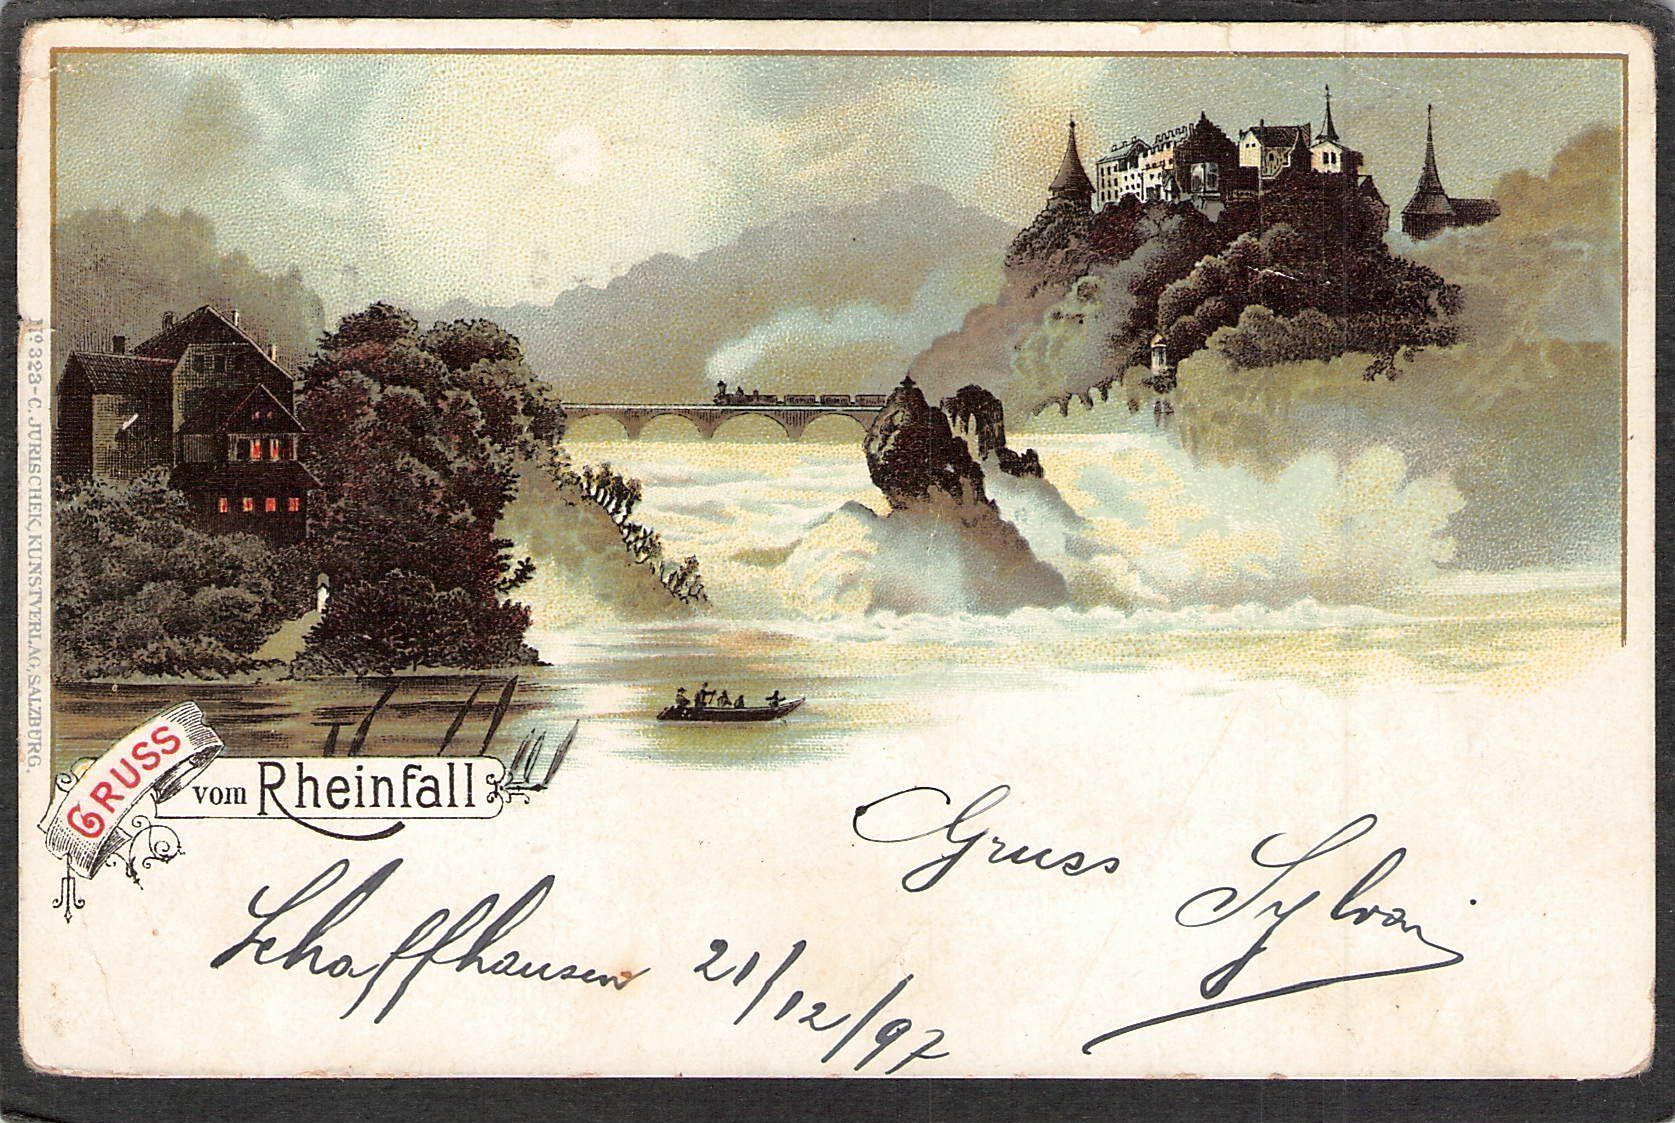 GRUSS
vom Rheinfall
Gruss Sylvain
Schaffhausen 21/12/97
Nº 323 - C. JURISCHEK, KUNSTVERLAG, SALZBURG.